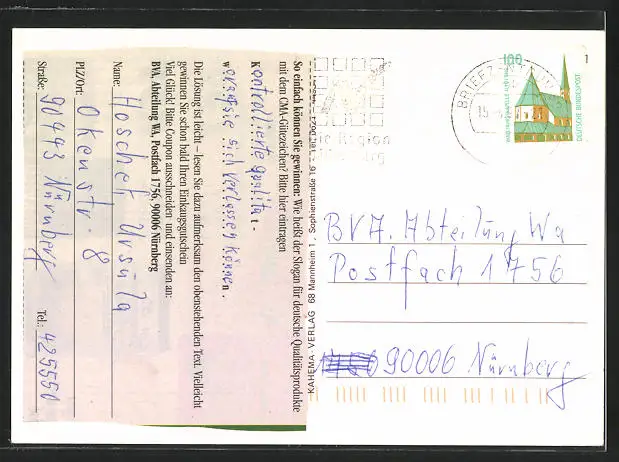 So einfach können Sie gewinnen: Wie heißt der Slogan für deutsche Qualitätsprodukte
mit dem CMA-Gütezeichen? Bitte hier eintragen
Kontrollierte Qualität -
worauf Sie sich verlassen können.
Die Lösung ist leicht - lesen Sie dazu aufmerksam den obenstehenden Text. Vielleicht
gewinnen Sie schon bald Ihren Einkaufsgutschein
Viel Glück! Bitte Coupon ausschneiden und einsenden an:
BVA, Abteilung WA, Postfach 1756, 90006 Nürnberg
Name: Hoschek Ursula
Okenstr 8
PLZ/Ort:
90443 Nürnberg
Straße:
Tel.: 425550
KAHEMA-VERLAG 68 Mannheim 1, Sophienstraße 16
Region
BRIEFZENTRUM
100
DEUTSCHE BUNDESPOST
BVA. Abteilung Wa
Postfach 1756
90006 Nürnberg